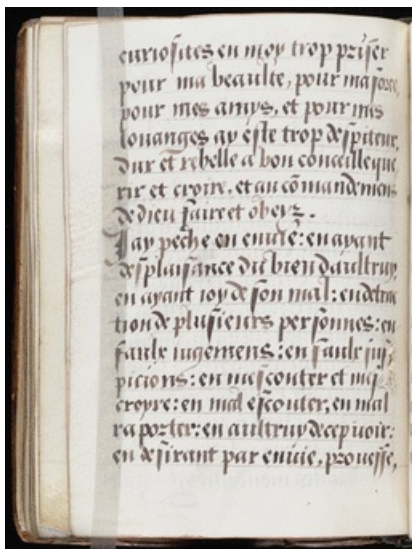 curiosites en moy trop priser
pour ma beaulte, pour ma force,
pour mes amys, et pour mes
louanges ay este trop despiteux,
dur et rebelle a bon conceil eque
rir et croire, et au cōmandemens
de dieu faire et obeyr.
Jay peche en enuie: en ayant
desplaisance du bien daultruy,
en ayant ioy de son mal: en detrac
tion de plusieurs personnes: en
faulx iugemens: en faulx sus
picions: en mescouter et mes
croyre: en mal escouter, en mal
raporter: en aultruy decepuoir:
en desirant par enuie, prouesse,